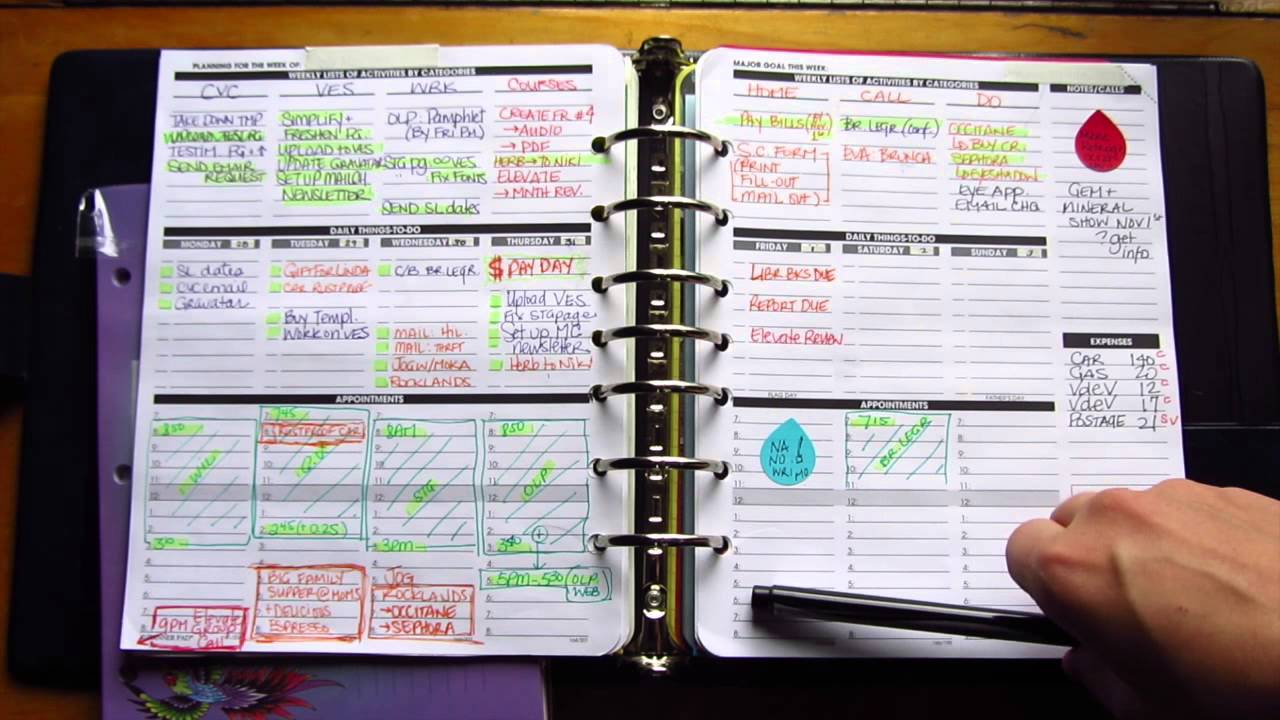 PLANNING FOR THE WEEK OF:
WEEKLY LISTS OF ACTIVITIES BY CATEGORIES
CVC
VES
WRK
COURSES
TAKE DOWN TMP
TESTIM. PG
SEND
REQUEST
SIMPLIFY +
FRESHEN PG.
UPLOAD TO VES
UPDATE GRAVATAR
SET UP MAILCH
NEWSLETTER
OLP: Pamphlet
(BY FRI
STG pg. VES
FIX FONTS
SEND SL dates
CREATE FR #4
→ AUDIO
→ PDF
HERB → TO NIKI
ELEVATE
→ MNTH REV.
DAILY THINGS-TO-DO
MONDAY 28
TUESDAY 29
WEDNESDAY 30
THURSDAY 31
SL dates
CVC email
Gravatar
GIFT FOR LINDA
CAR RUSTPROOF
Buy Templ.
Work on VES
C/B BR. LEGR.
MAIL: HIL.
MAIL: THRFT
JOG W/MOKA
ROCKLANDS
$ PAY DAY
Upload VES
Fix STG page
Set up MC
newsletter
Herb to Niki
APPOINTMENTS
850
WILL
310
745
RUSTPROOF CAR
245 (+0.25)
8AM
STG
3PM
850
OLP
340
+
5PM-530 (OLP
WEB)
9PM
Call
BIG FAMILY
SUPPER @ MOMS
+ DELICIOUS
ESPRESSO
JOG
ROCKLANDS
→ OCCITANE
→ SEPHORA
MAJOR GOAL THIS WEEK:
WEEKLY LISTS OF ACTIVITIES BY CATEGORIES
HOME
CALL
DO
PAY BILLS
S.C. FORM
PRINT
FILL-OUT
MAIL OUT
BR. LEGR (conf.)
EVA BRUNCH
OCCITANE
↳ BUY CR.
SEPHORA
↳ EYESHADOW
EYE APP.
EMAIL CHQ
NOTES/CALLS
GEM +
MINERAL
SHOW NOV 1st
? get
info
DAILY THINGS-TO-DO
FRIDAY 1
SATURDAY 2
SUNDAY 3
LIBR BKS DUE
REPORT DUE
Elevate Review
FLAG DAY
FATHER'S DAY
EXPENSES
CAR 140 C
GAS 20 C
VdeV 12 C
VdeV 17 C
POSTAGE 21 SV
APPOINTMENTS
NA
NO !
WRI MO
715
BR. LEGR